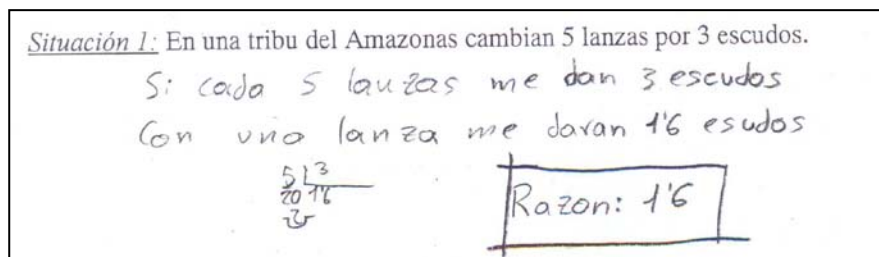 Situación 1: En una tribu del Amazonas cambian 5 lanzas por 3 escudos.
Si cada 5 lanzas me dan 3 escudos
Con una lanza me daran 1'6 esudos
5 3
20 1'6
2
Razon: 1'6